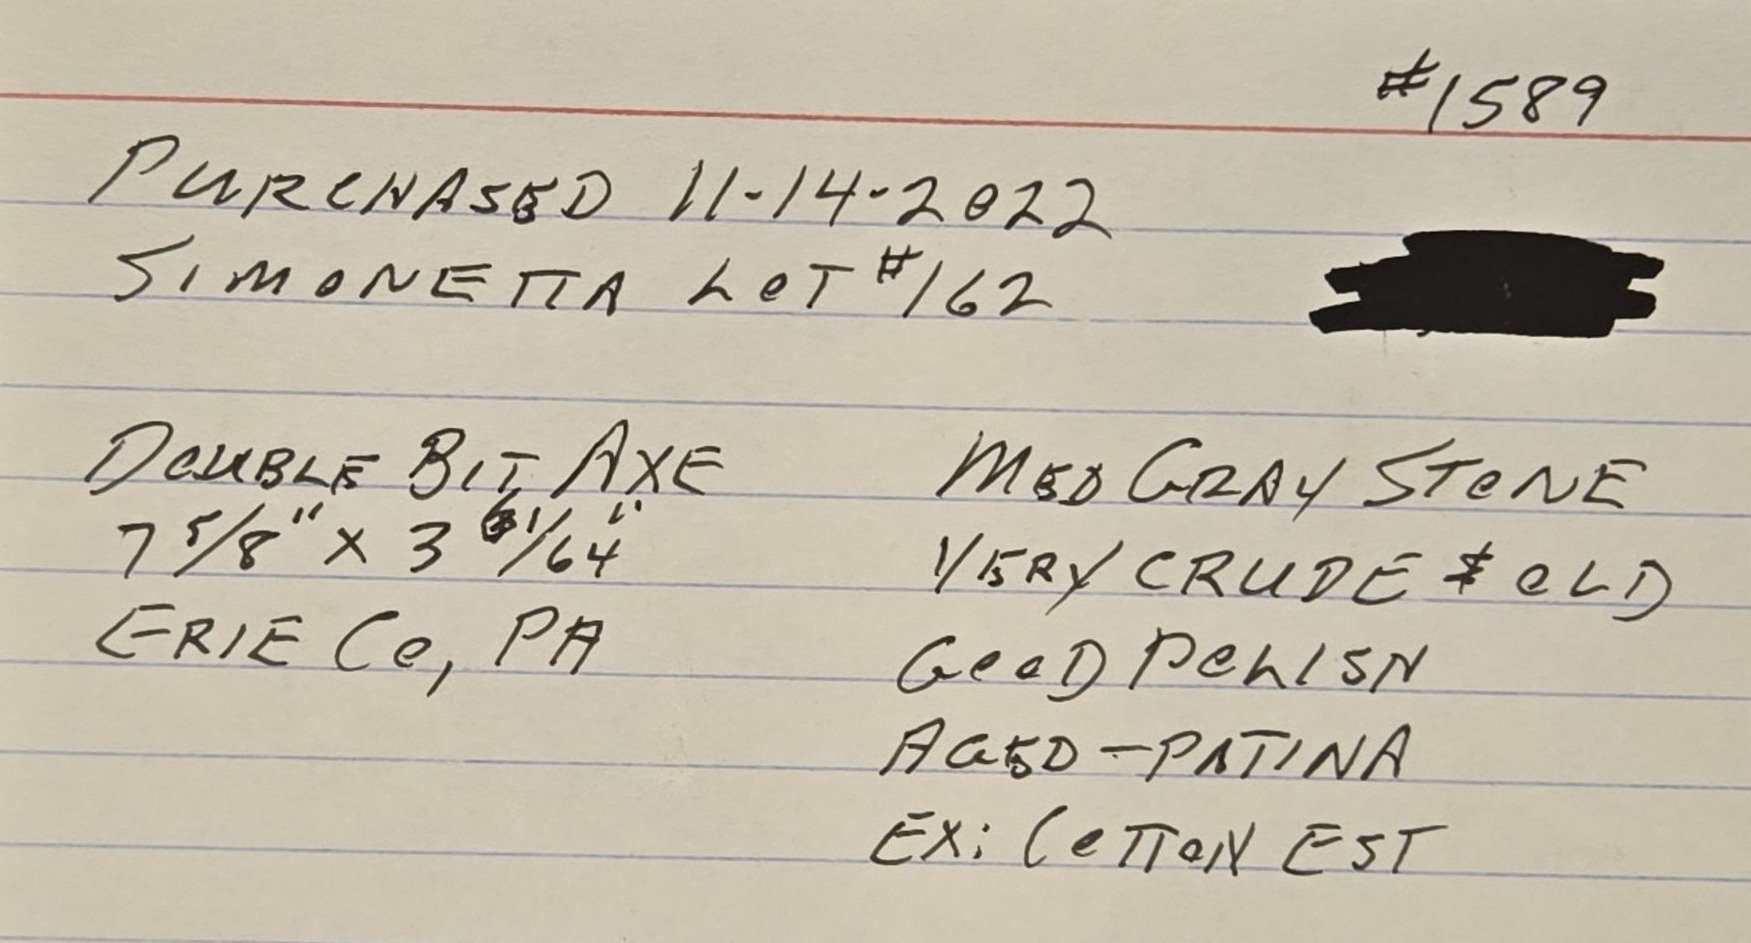 #1589
PURCHASED 11-14-2022
SIMONETTA LOT #162
DOUBLE BIT AXE
7 5/8" x 3 61/64"
ERIE Co, PA
MED GRAY STONE
VERY CRUDE & OLD
GOOD POLISH
AGED - PATINA
EX: COTTON EST